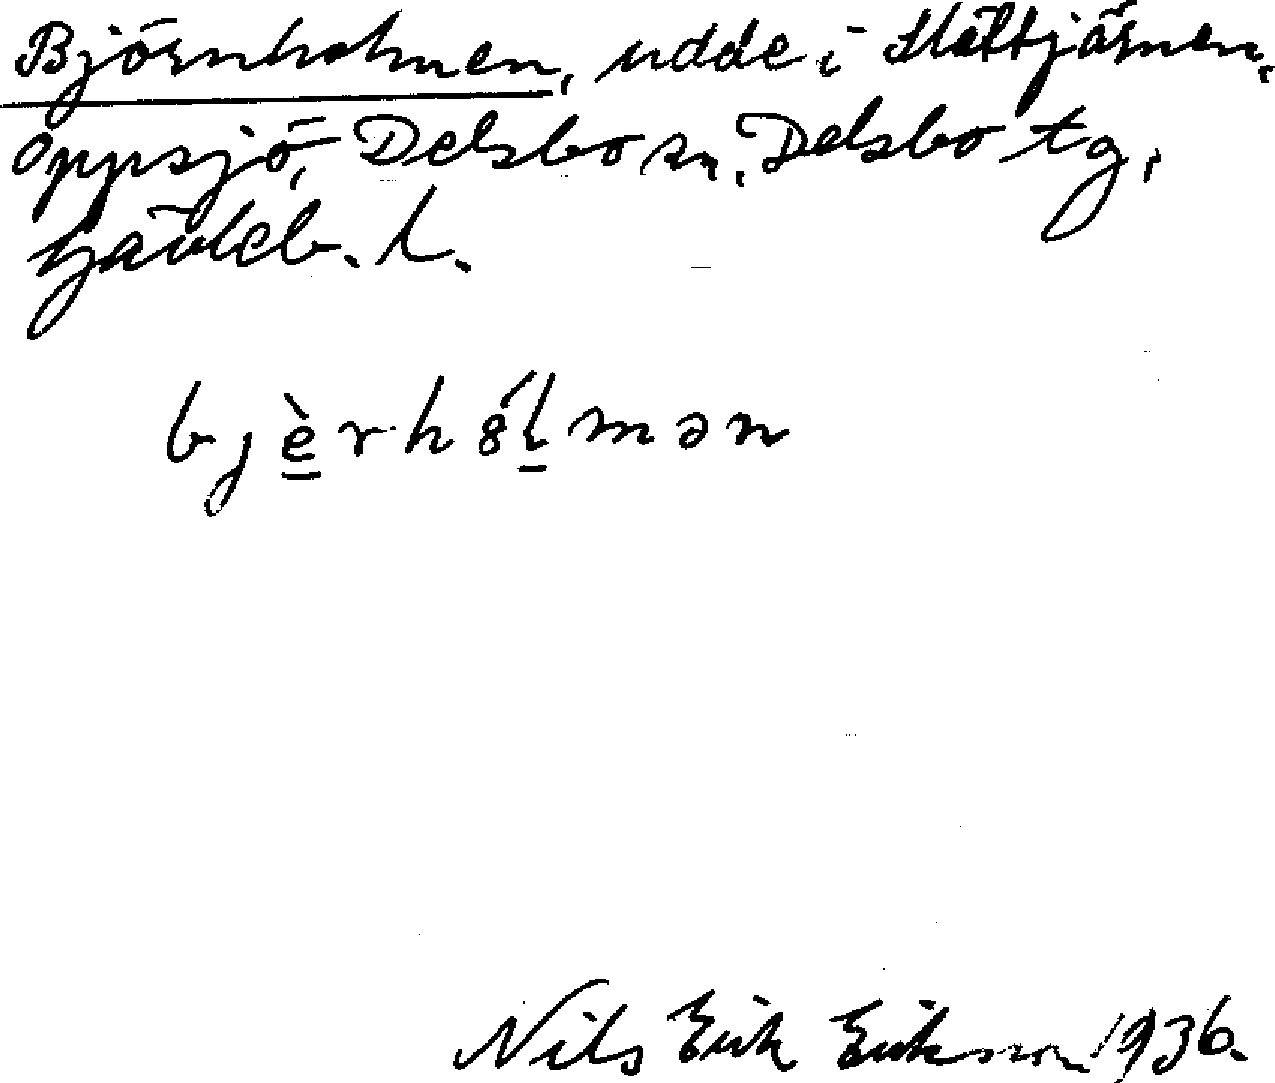 Björnholmen, udde i Slättjärnen,
Oppsjö, Delsbo sn, Delsbo tg,
Gävleb. l.
bjèrhólmən
Nils Erik Erikson 1936.